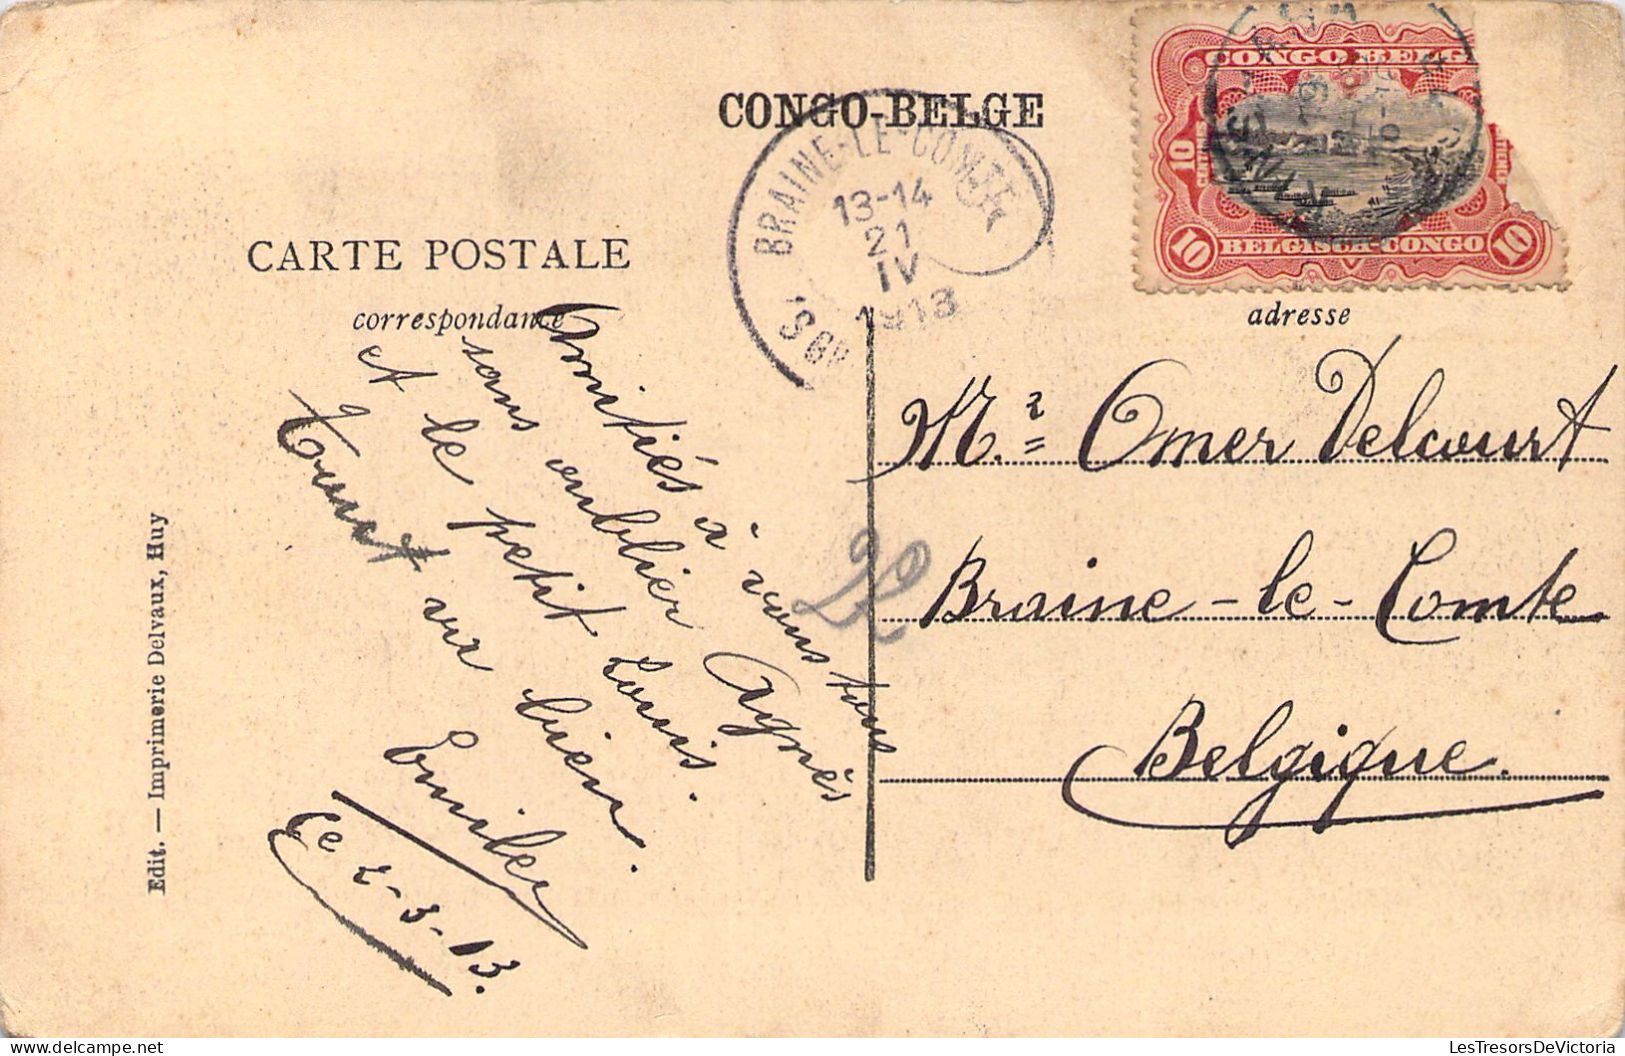 CONGO-BELGE
CARTE POSTALE
correspondance
adresse
CONGO BELG
10
BELGISCH-CONGO
10
10
BRAINE-LE-COMTE
13-14
21
IV
1913
Amitiés à vous tous
sans oublier Agnès
et le petit Louis.
Tout va bien.
Emile
Ce 2-3-13.
Mr. Omer Delcourt
Braine-le-Comte
Belgique.
Edit. — Imprimerie Delvaux, Huy
LesTresorsDeVictoria